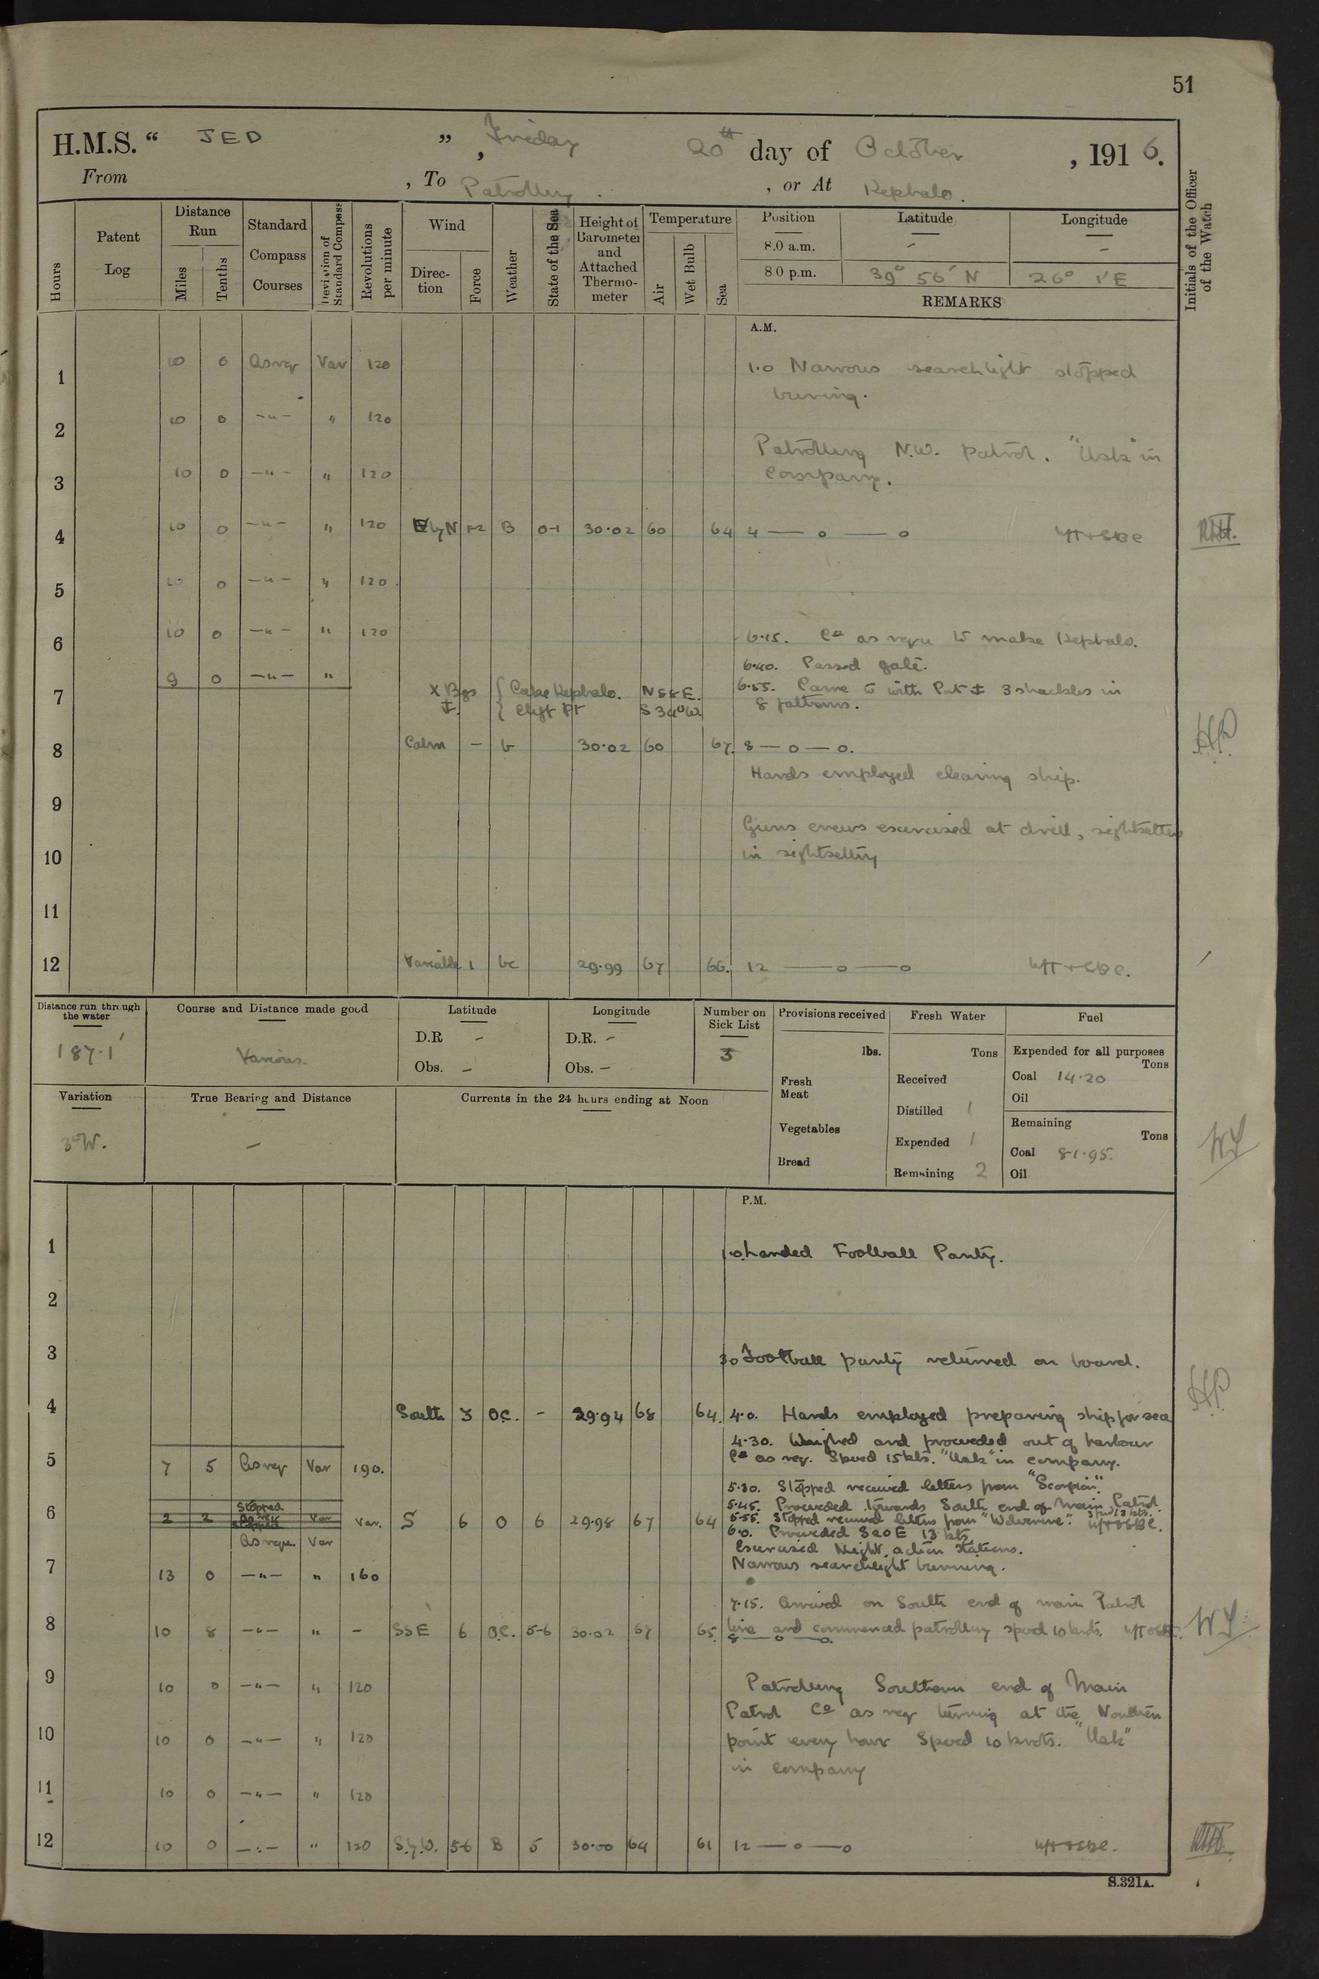 51
H.M.S. " JED ", Friday 20th day of October, 1916.
From , To Patrolling. , or At Kephalo.
Hours
Patent Log
Distance Run
Miles
Tenths
Standard Compass Courses
Deviation of Standard Compass
Revolutions per minute
Wind
Direction
Force
Weather
State of the Sea
Height of Barometer and Attached Thermometer
Temperature
Air
Wet Bulb
Sea
Position Latitude Longitude
8.0 a.m. - -
8.0 p.m. 39° 56' N 26° 1' E
REMARKS
Initials of the Officer of the Watch
A.M.
1 10 0 As req Var 120 1.0 Narrows searchlight stopped
burning.
2 10 0 —"— " 120
Patrolling N.W. patrol. "Usk" in
3 10 0 —"— " 120 company.
4 10 0 —"— " 120 by N 1-2 B 0-1 30.02 60 64 4 — o — o
5 10 0 —"— " 120
6 10 0 —"— " 120 6.15. Co as requ to make Kephalo.
6.40. Passed gate.
7 9 0 —"— " X Bgs { Cape Kephalo. N 88 E. 6.55. Came to with Port ⚓ 3 shackles in
⚓. { Cliff Pt S 34° W. 8 fathoms.
8 Calm - b 30.02 60 67. 8 — o — o.
Hands employed cleaning ship.
9
Guns crews exercised at drill, sightsetters
10 in sightsetting
11
12 Variable 1 bc 29.99 67 66. 12 — o — o
Distance run through the water
187.1'
Course and Distance made good
Various
Latitude
D.R -
Obs. -
Longitude
D.R. -
Obs. -
Number on Sick List
3
Provisions received
lbs.
Fresh Meat
Vegetables
Bread
Fresh Water
Tons
Received
Distilled 1
Expended 1
Remaining 2
Fuel
Expended for all purposes
Tons
Coal 14.20
Oil
Remaining
Tons
Coal 81.95.
Oil
Variation
3°W.
True Bearing and Distance
-
Currents in the 24 hours ending at Noon
P.M.
1 1.0 Landed Football Party.
2
3 3.0 Football party returned on board.
4 South 3 O.C. - 29.94 68 64. 4.0. Hands employed preparing ship for sea
4.30. Weighed and proceeded out of harbour
5 7 5 As req Var 190. Co as req. Speed 15 kts. "Usk" in company.
5.30. Stopped received letters from "Scorpion".
Stopped 5.45. Proceeded towards South end of Main Patrol.
6 2 2 Var Var. S 6 O 6 29.98 67 64 5.55. Stopped received letters from "Wolverine". Speed 13 kts.
As requ. Var 6.0. Proceeded S20E 13 kts.
Exercised Night action stations.
7 13 0 —"— " 160 Narrows searchlight burning.
7.15. Arrived on South end of main Patrol
8 10 8 —"— " - SSE 6 O.C. 5-6 30.02 67 65. line and commenced patrolling speed 10 knots.
8 — o — o.
9 10 0 —"— " 120 Patrolling Southern end of Main
Patrol Co as req turning at the Northern
10 10 0 —"— " 120 point every hour Speed 10 knots. "Usk"
in company
11 10 0 —"— " 120
12 10 0 —"— " 120 S.y.W. 5-6 B 5 30.00 64 61 12 — o — o
S.321A.